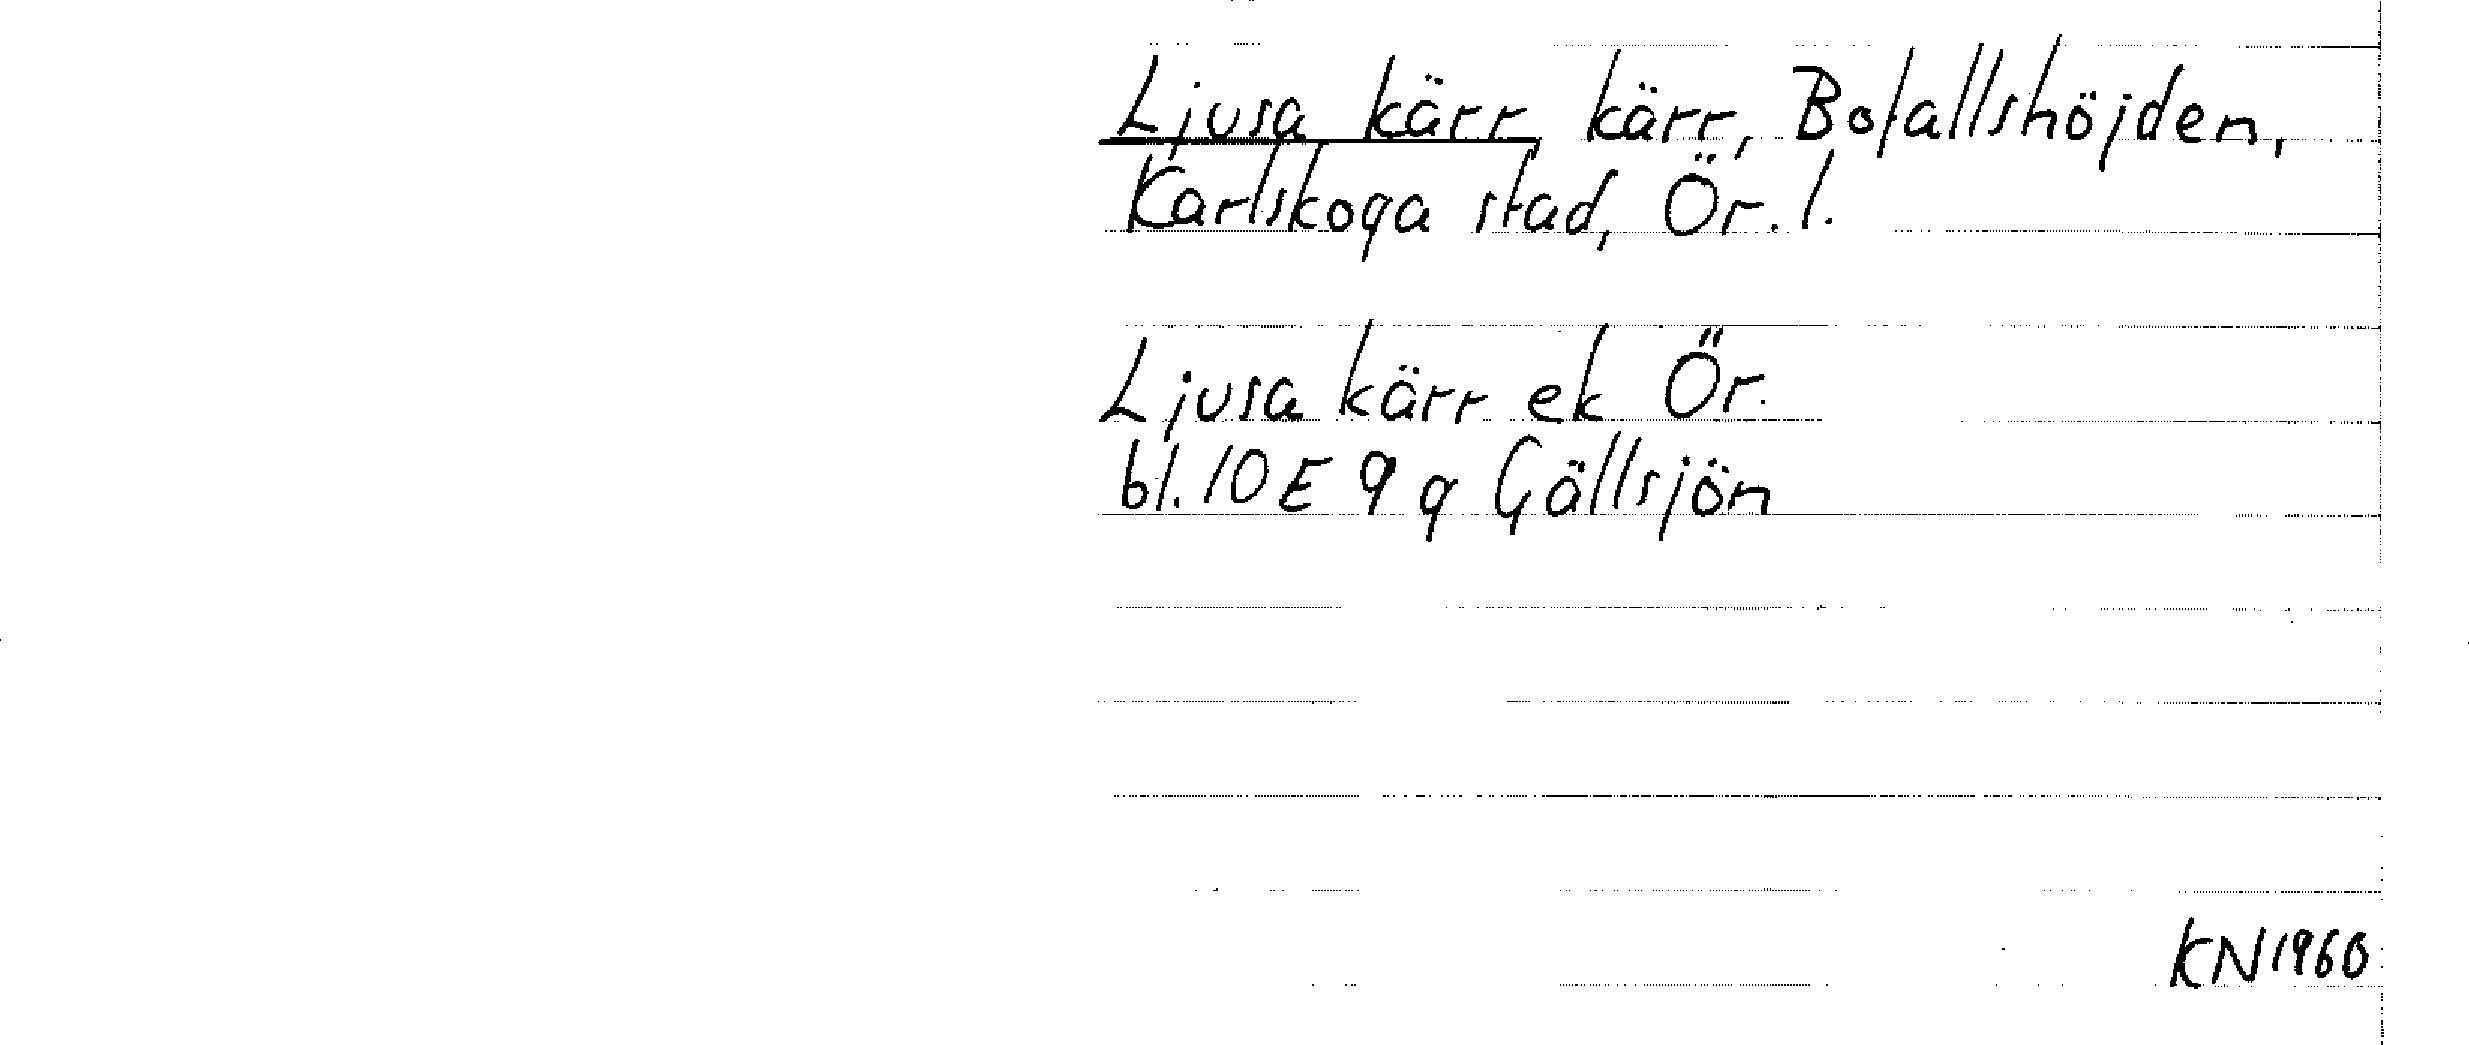 Ljusa kärr, kärr, Bofallshöjden,
Karlskoga stad, Ör. l.
Ljusa kärr ek Ör.
bl. 10 E 9 g Gällsjön
KN 1960